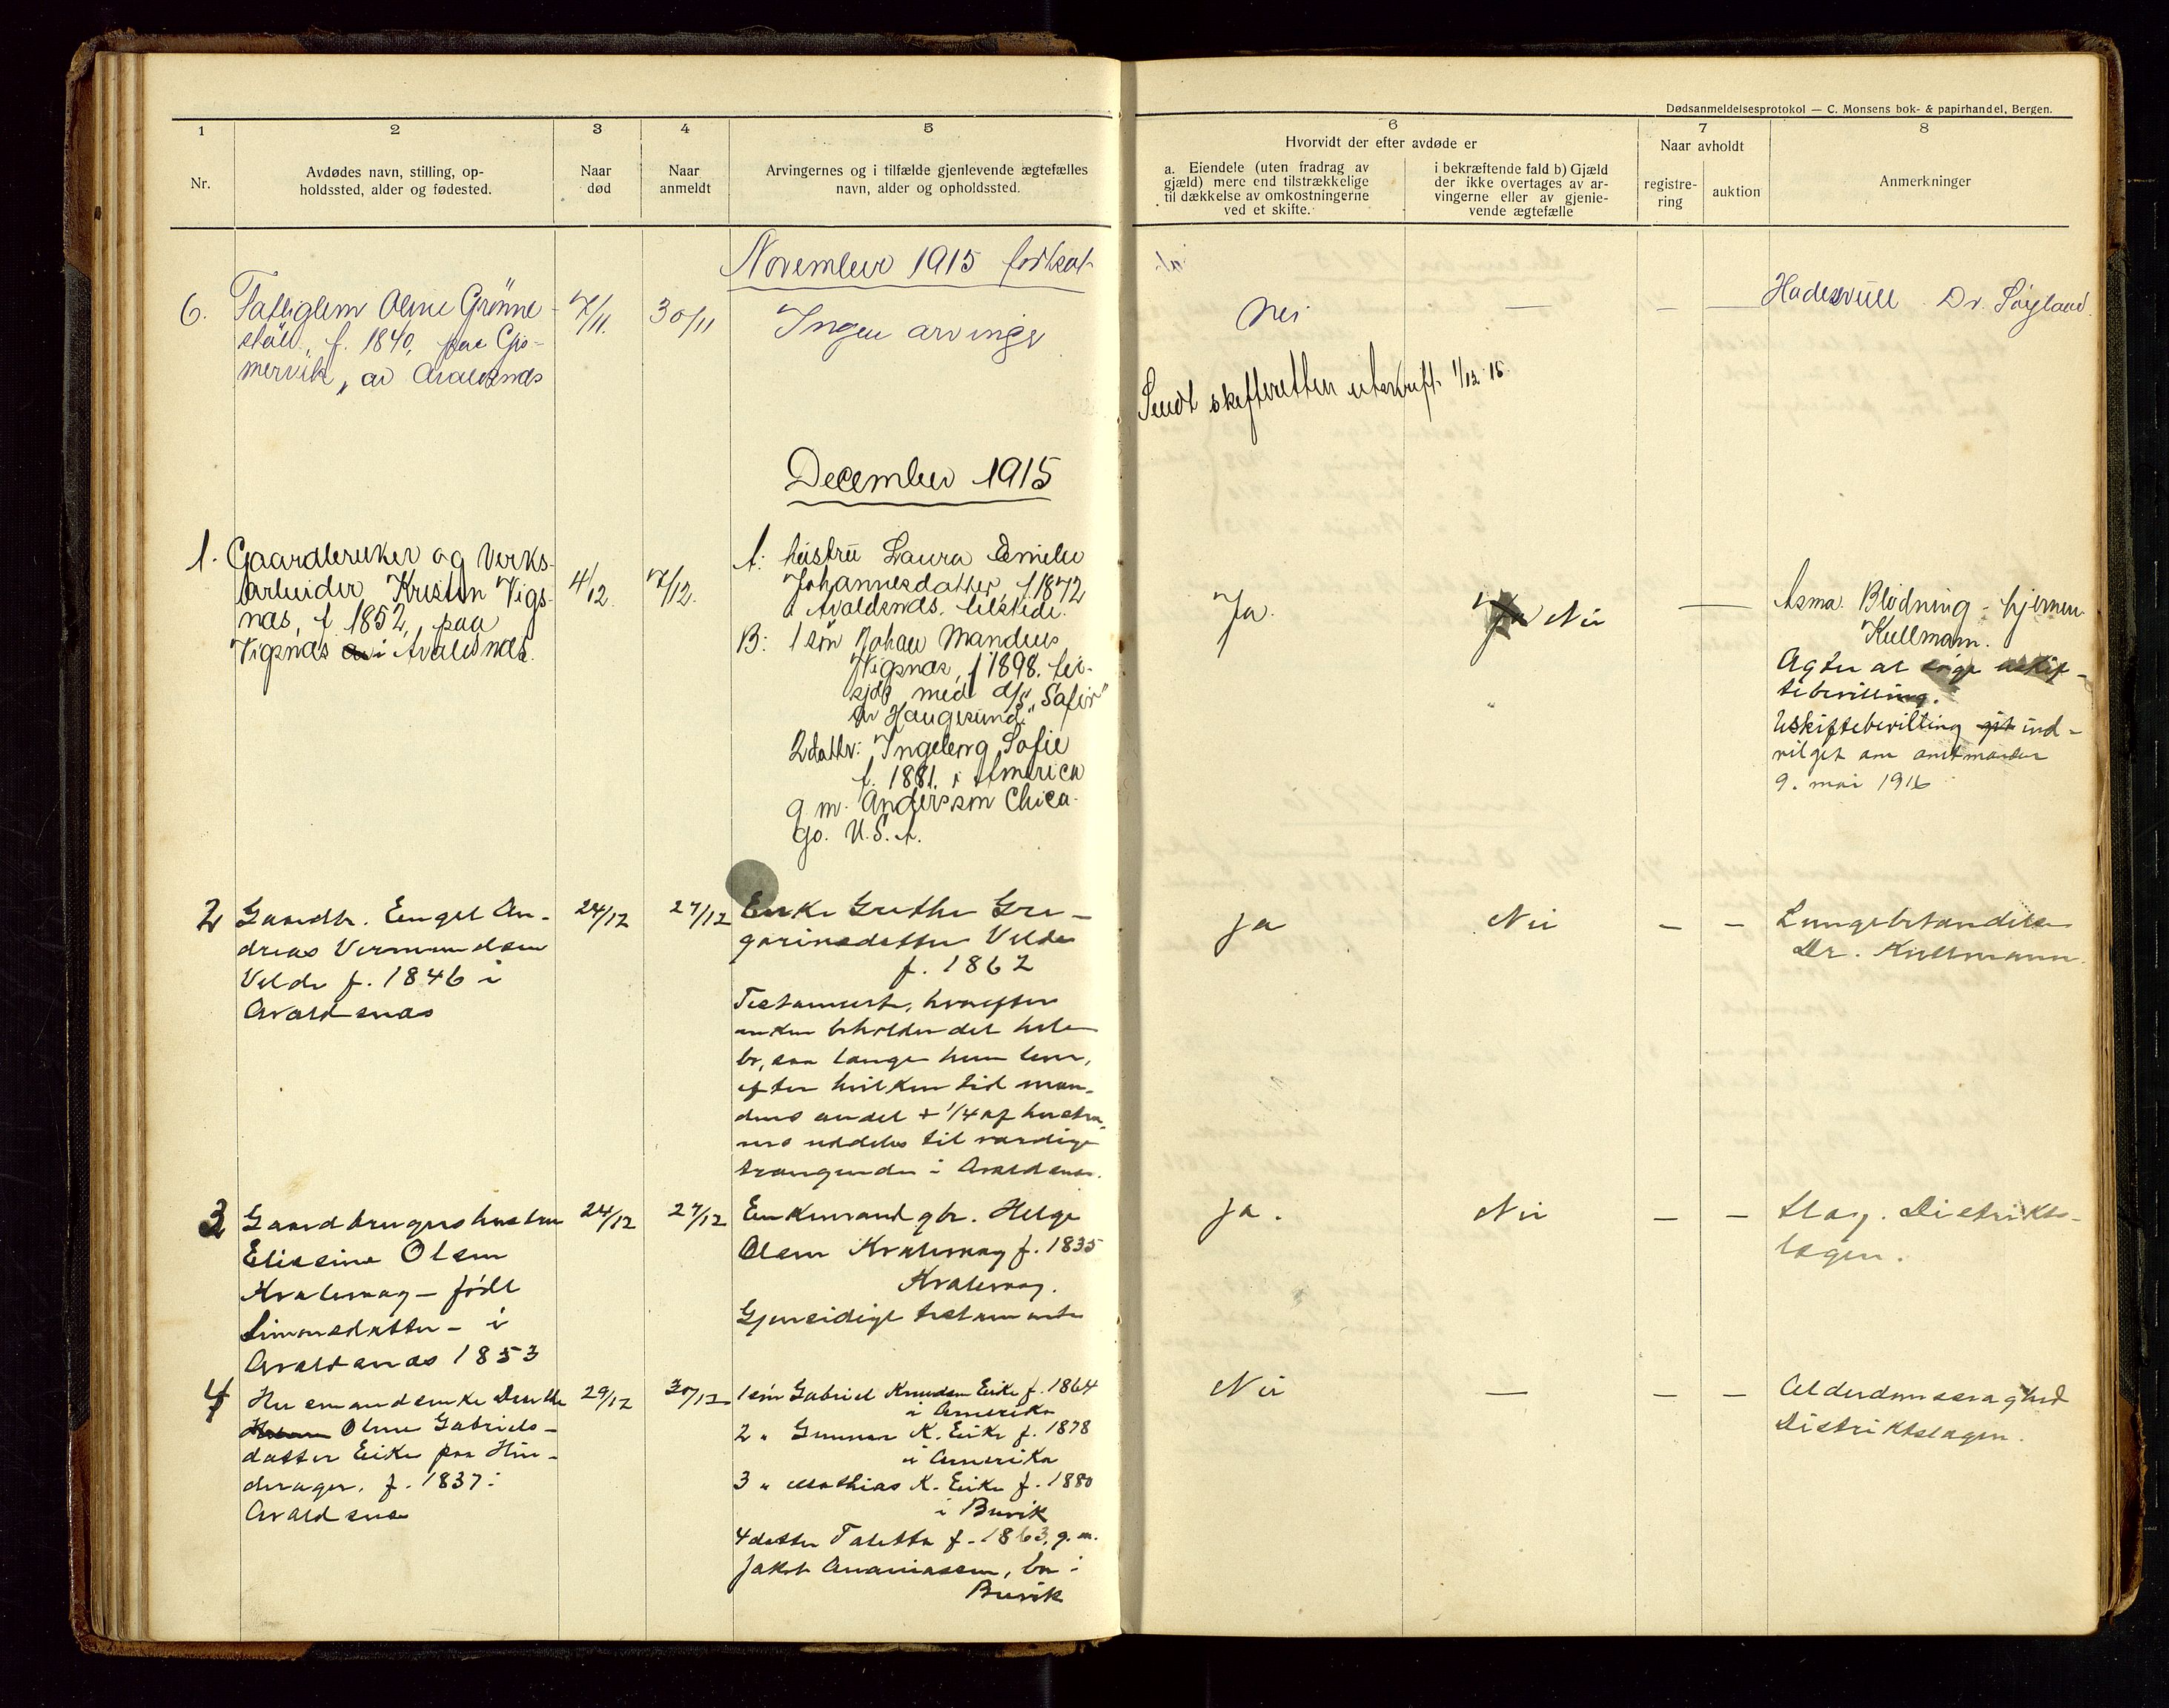 Dødsanmeldelsesprotokol — C. Monsens bok- & papirhandel, Bergen.
1 2 3 4 5 6 7 8
Nr.
Avdødes navn, stilling, op-
holdssted, alder og fødested.
Naar
død
Naar
anmeldt
Arvingernes og i tilfælde gjenlevende ægtefælles
navn, alder og opholdssted.
Hvorvidt der efter avdøde er
a. Eiendele (uten fradrag av
gjæld) mere end tilstrækkelige
til dækkelse av omkostningerne
ved et skifte.
i bekræftende fald b) Gjæld
der ikke overtages av ar-
vingerne eller av gjenle-
vende ægtefælle
Naar avholdt
registre-
ring
auktion
Anmerkninger
November 1915 fortsat
6. Fattiglem Oline Grönne-
støl, f. 1840, paa
mervik, av Avaldsnæs
7/11. 30/11
Ingen arvinge
Nei — — —
Dr.
Sendt skifteretten utskrift 1/12 15
December 1915
1. Gaardbruker og Verks-
arbeider Kristen Vigs-
næs, f. 1852, paa
Vigsnæs av i Avaldsnæs.
4/12 7/12.
A: hustru Laura Emelie
Johannesdatter, f 1872
i Avaldsnæs. tilstede.
B: 1 søn Johan Mandius
Vigsnæs, f 1898. til-
sjøs med d/s "Safir"
av Haugesund.
2 datter: Ingeborg Sofie
f. 1881. i America
g m. Andersson Chica-
go. U.S.A.
Ja. Ja Nei —
Asma. Blødning i hjernen.
Kullmann.
Agter at søge uskif-
tebevilling.
Uskiftebevilling git ind-
vilget av amtmanden
9. mai 1916
2 Gaardbr. Engel An-
dreas Vermundsen
Velde f. 1846 i
Avaldsnæs
24/12 27/12
Enke Grethe Gre-
goriusdatter Velde
f. 1862
Testament, hvorefter
enken beholder det hele
bo, saa længe hun lever,
efter hvilken tid man-
dens andel + 1/4 af hustru-
ens uddeles til værdige
trængende i Avaldsnæs.
Ja Nei — —
Lungebetændelse
Dr. Kullmann.
3 Gaardbrugerhustru
Elissine Olsen
Kvalevaag – født
Simonsdatter – i
Avaldsnæs 1853
24/12 27/12
Enkemand gbr. Helge
Olsen Kvalevaag f. 1835
Kvalevaag.
Gjensidigt testamente
Ja. Nei — —
Slag. Distrikts-
lægen.
4 Husmandsenke
Oline Gabriels-
datter Eike paa Hin-
derager. f. 1837 i
Avaldsnæs
29/12 30/12
1 søn Gabriel Knudsen Eike f. 1864
i Amerika
2 " Gunnar K. Eike f. 1878
i Amerika
3 " Mathias K. Eike f. 1880
i Buvik
4 datter Taletta f. 1863, g. m.
Jakob Ananiassen, bor i
Buvik
Nei — — —
Alderdomssvaghed
Distriktslægen.